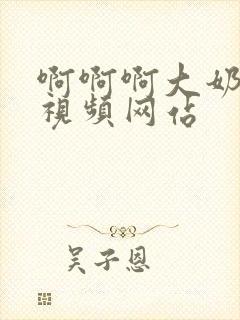 啊啊啊大奶
视频网佔
吴子恩